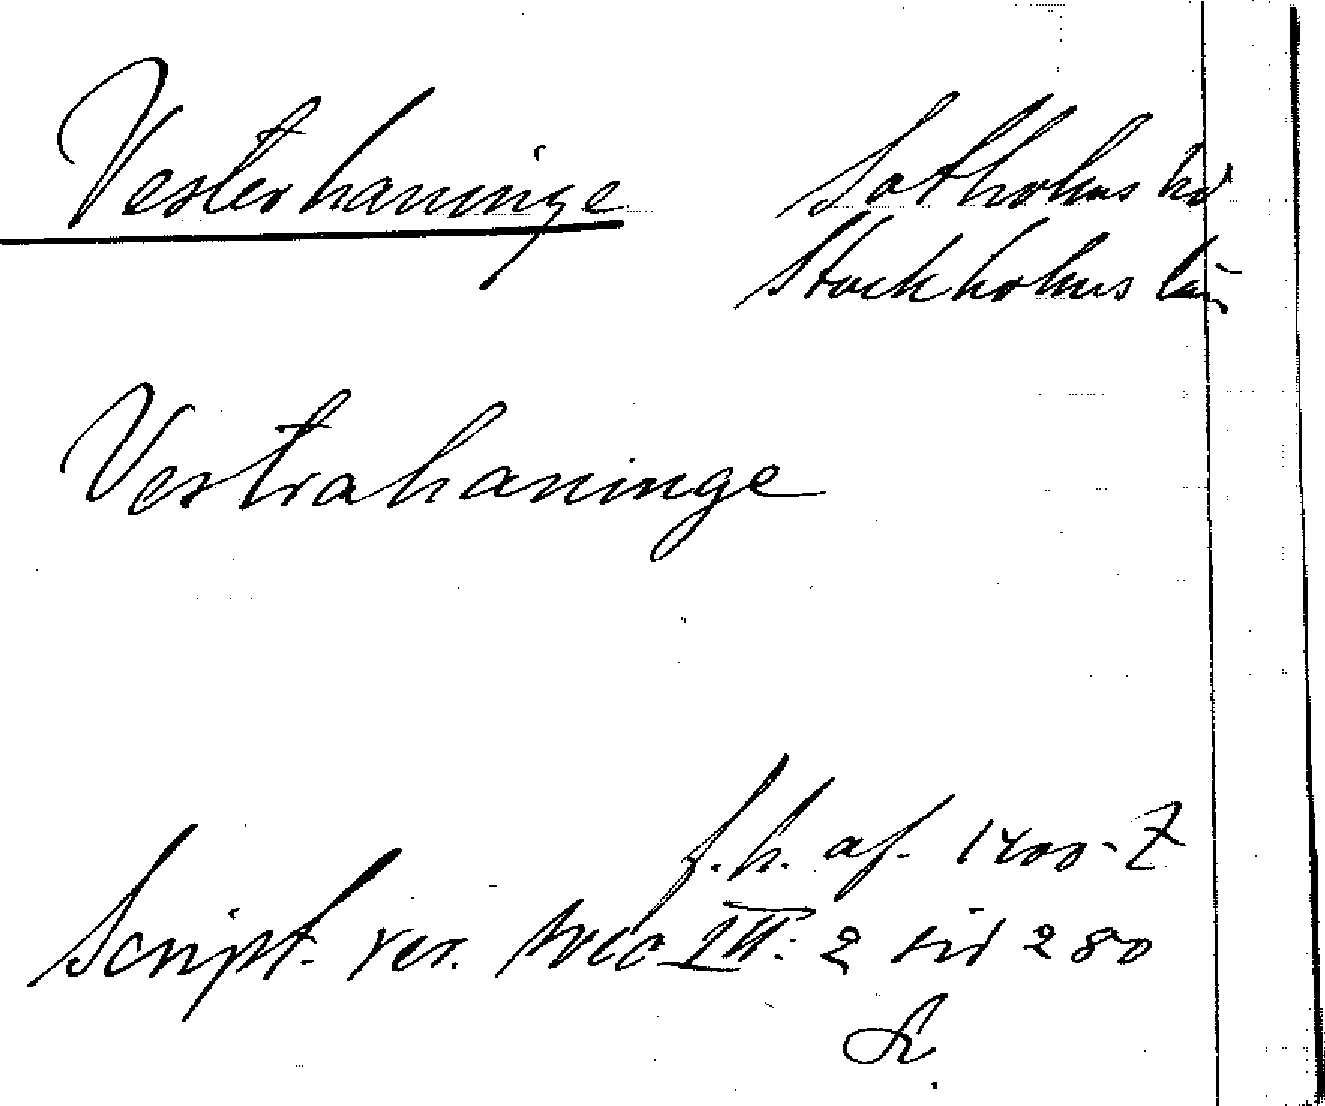 Vesterhaninge
Sotholms hd
Stockholms län
Vestrahaninge
f.h. af. 1400-t
Script. rer. svec III: 2 sid 280